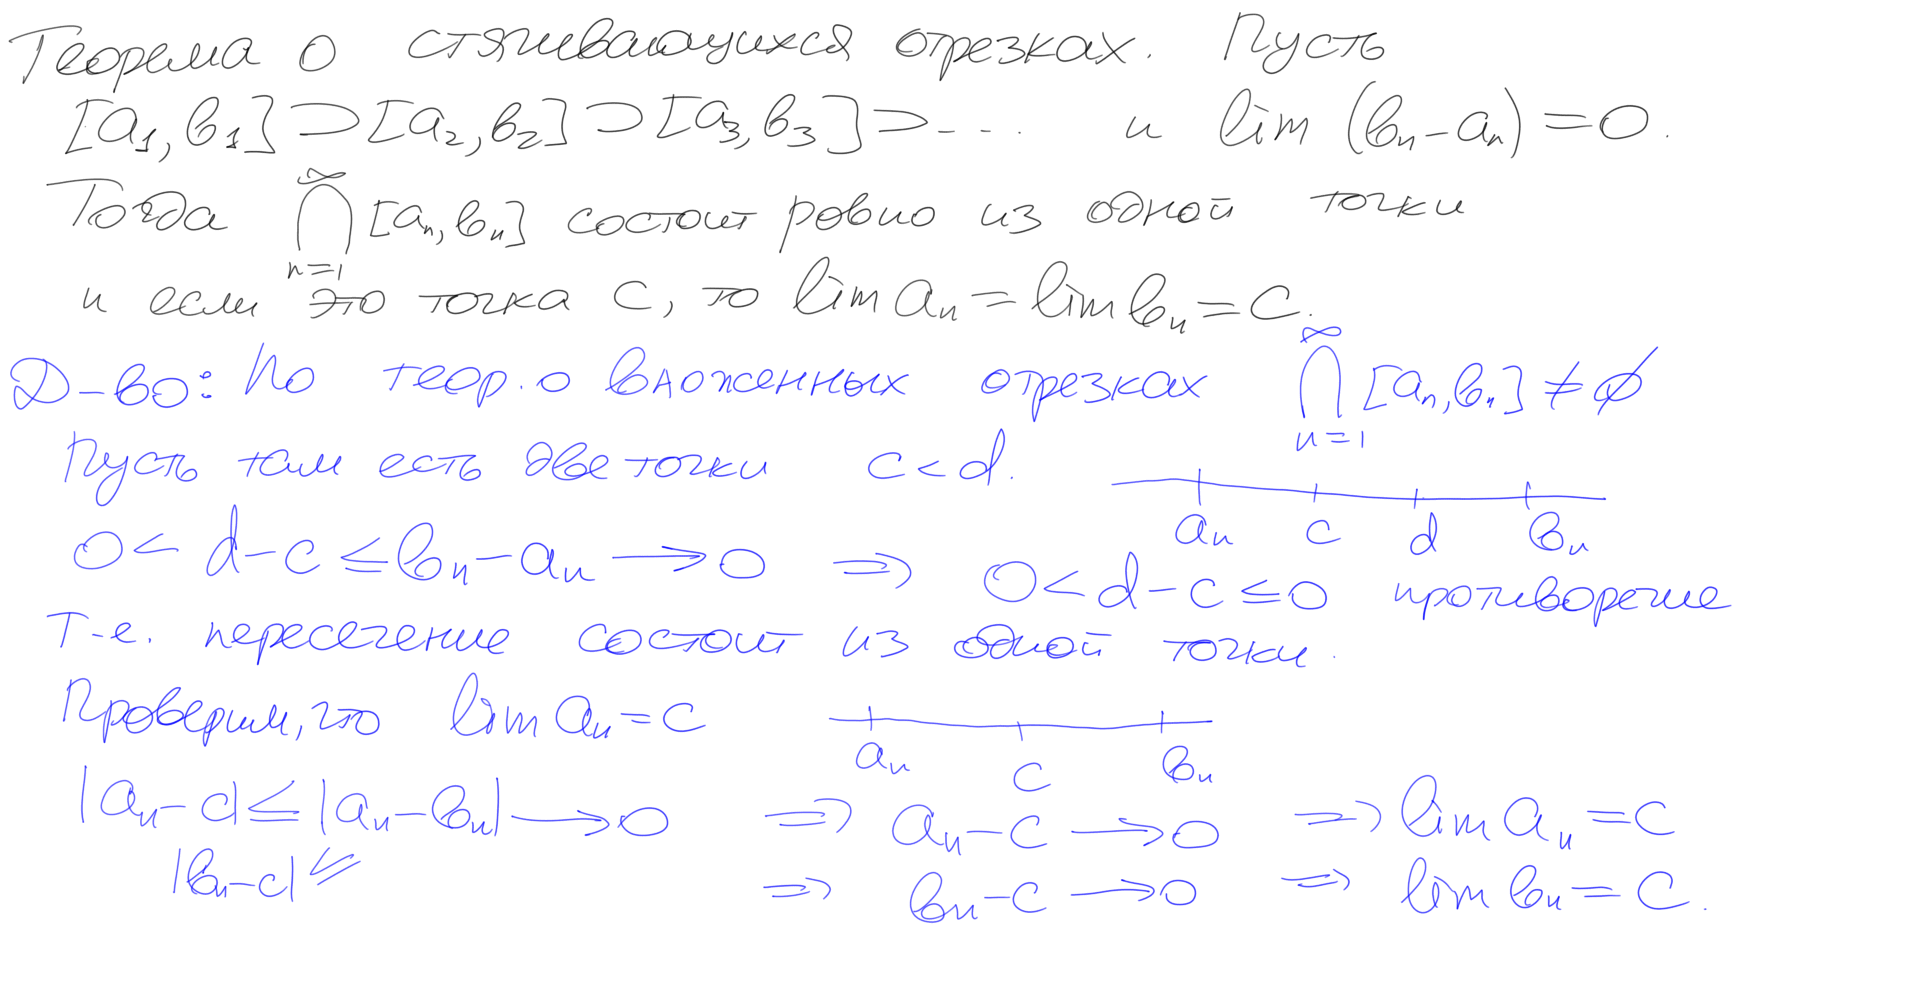 Теорема о стягивающихся отрезках. Пусть
[a₁, b₁] ⊃ [a₂, b₂] ⊃ [a₃, b₃] ⊃ ... и lim (bₙ − aₙ) = 0.
Тогда ⋂_{n=1}^{∞} [aₙ, bₙ] состоит ровно из одной точки
и если это точка c, то lim aₙ = lim bₙ = c.
Д-во: По теор. о вложенных отрезках ⋂_{n=1}^{∞} [aₙ, bₙ] ≠ ∅
Пусть там есть две точки c < d.
aₙ c d bₙ
0 < d − c ≤ bₙ − aₙ → 0 ⇒ 0 < d − c ≤ 0 противоречие
Т.е. пересечение состоит из одной точки.
Проверим, что lim aₙ = c
aₙ c bₙ
|aₙ − c| ≤ |aₙ − bₙ| → 0 ⇒ aₙ − c → 0 ⇒ lim aₙ = c
|bₙ − c| ≤ ⇒ bₙ − c → 0 ⇒ lim bₙ = c.